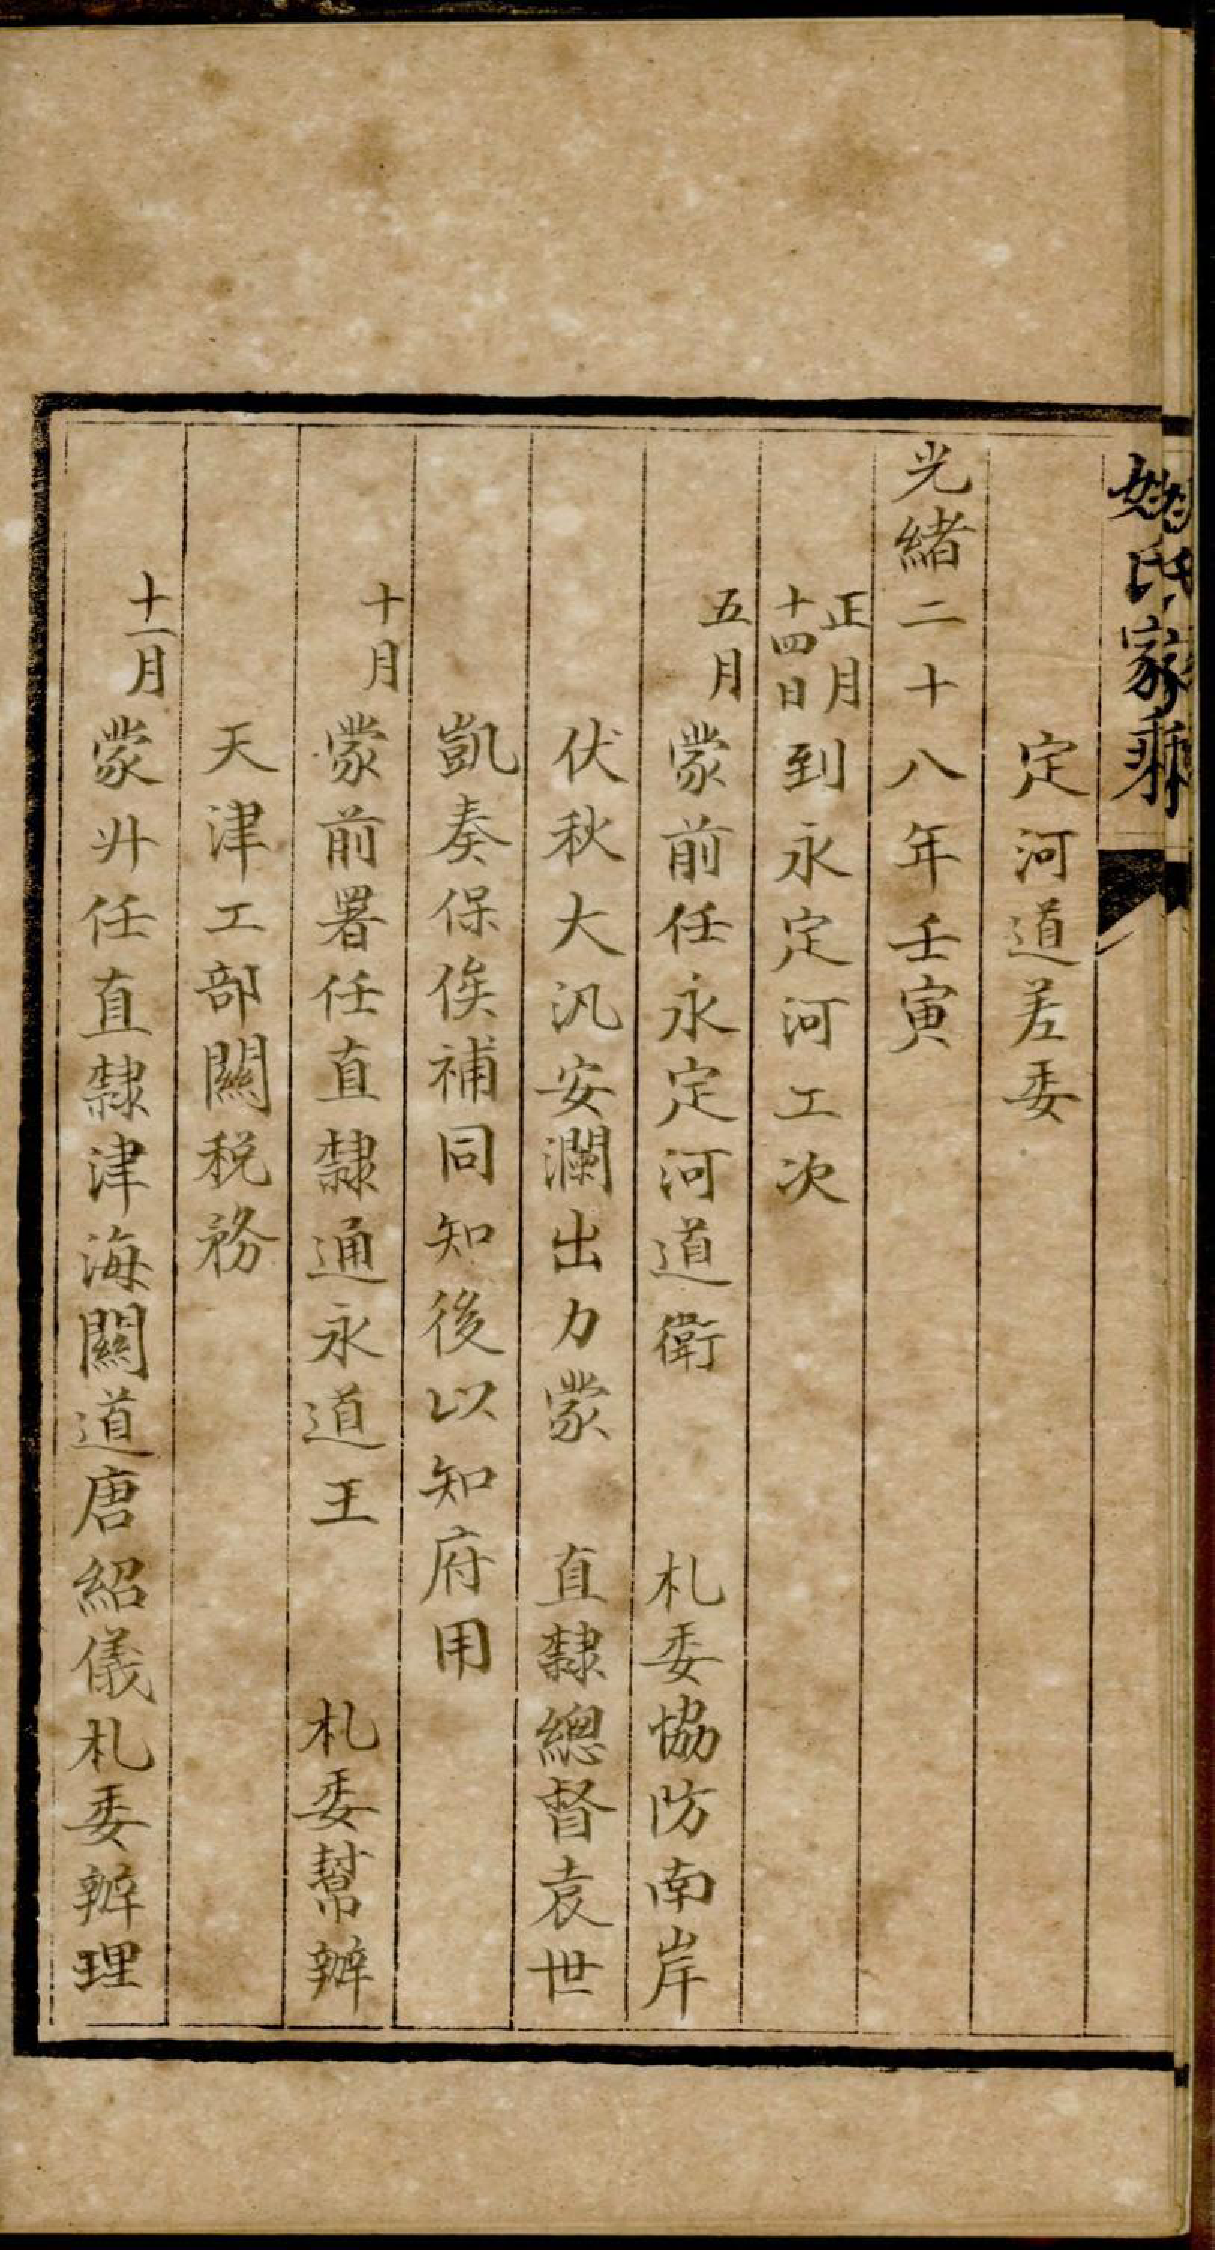 姚氏家乘
定河道差委
光緒二十八年壬寅
正月十四日到永定河工次
五月蒙前任永定河道衛　札委協防南岸
伏秋大汛安瀾出力蒙　直隸總督袁世
凱奏保俟補同知後以知府用
十月蒙前署任直隸通永道王　札委幫辦
天津工部關稅務
十一月蒙升任直隸津海關道唐紹儀札委辦理